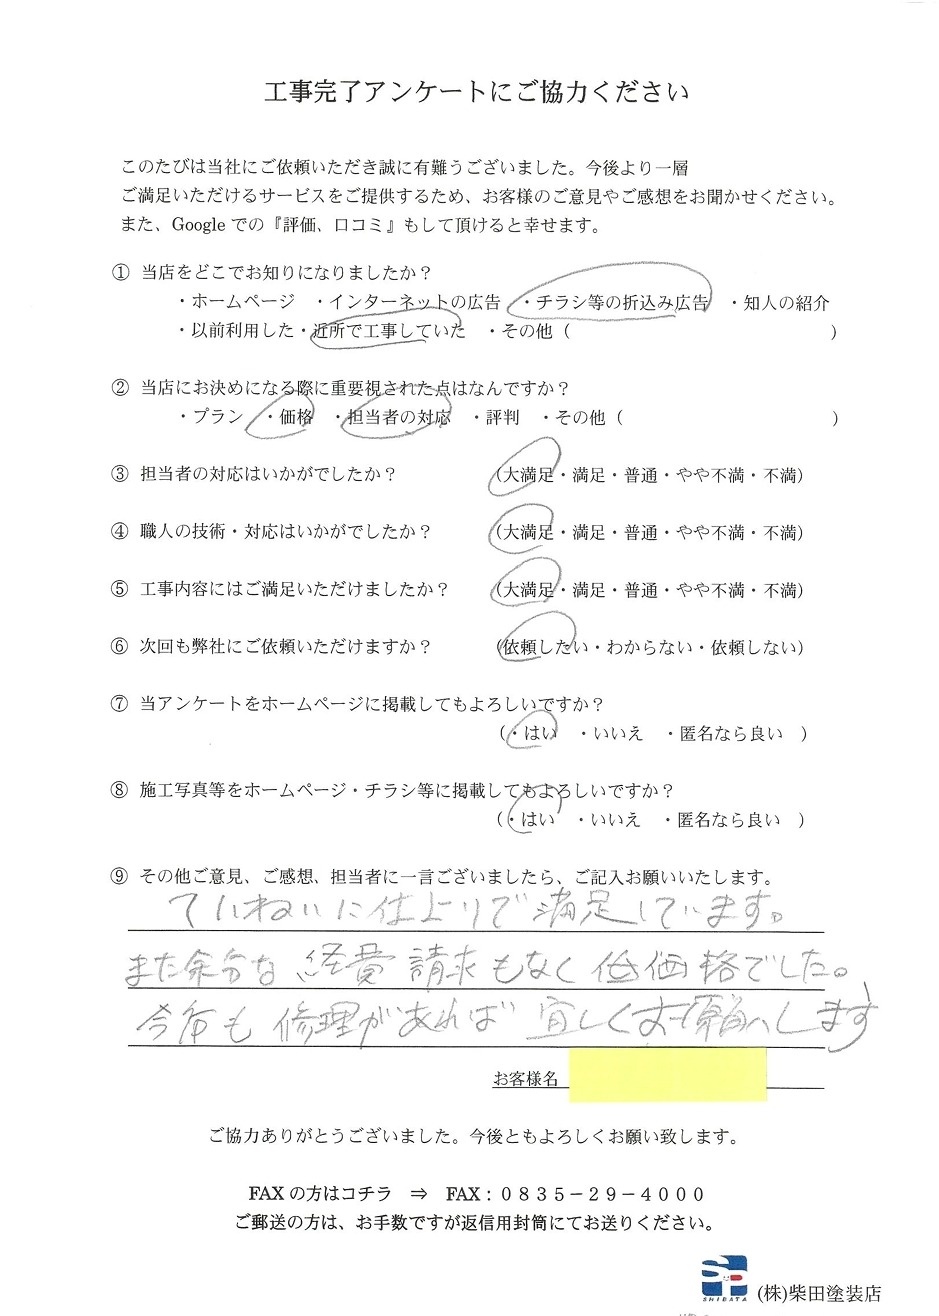 工事完了アンケートにご協力ください
このたびは当社にご依頼いただき誠に有難うございました。今後より一層
ご満足いただけるサービスをご提供するため、お客様のご意見やご感想をお聞かせください。
また、Googleでの『評価、口コミ』もして頂けると幸せます。
① 当店をどこでお知りになりましたか？
・ホームページ ・インターネットの広告 ・チラシ等の折込み広告 ・知人の紹介
・以前利用した・近所で工事していた ・その他（ ）
② 当店にお決めになる際に重要視された点はなんですか？
・プラン ・価格 ・担当者の対応 ・評判 ・その他（ ）
③ 担当者の対応はいかがでしたか？ （大満足・満足・普通・やや不満・不満）
④ 職人の技術・対応はいかがでしたか？ （大満足・満足・普通・やや不満・不満）
⑤ 工事内容にはご満足いただけましたか？ （大満足・満足・普通・やや不満・不満）
⑥ 次回も弊社にご依頼いただけますか？ （依頼したい・わからない・依頼しない）
⑦ 当アンケートをホームページに掲載してもよろしいですか？
（・はい ・いいえ ・匿名なら良い ）
⑧ 施工写真等をホームページ・チラシ等に掲載してもよろしいですか？
（・はい ・いいえ ・匿名なら良い ）
⑨ その他ご意見、ご感想、担当者に一言ございましたら、ご記入お願いいたします。
ていねいに仕上りで満足しています。
また余分な経費請求もなく低価格でした。
も修理があれば宜しくお願いします
お客様名
ご協力ありがとうございました。今後ともよろしくお願い致します。
FAXの方はコチラ ⇒ FAX：０８３５－２９－４０００
ご郵送の方は、お手数ですが返信用封筒にてお送りください。
SP
SHIBATA
(株)柴田塗装店